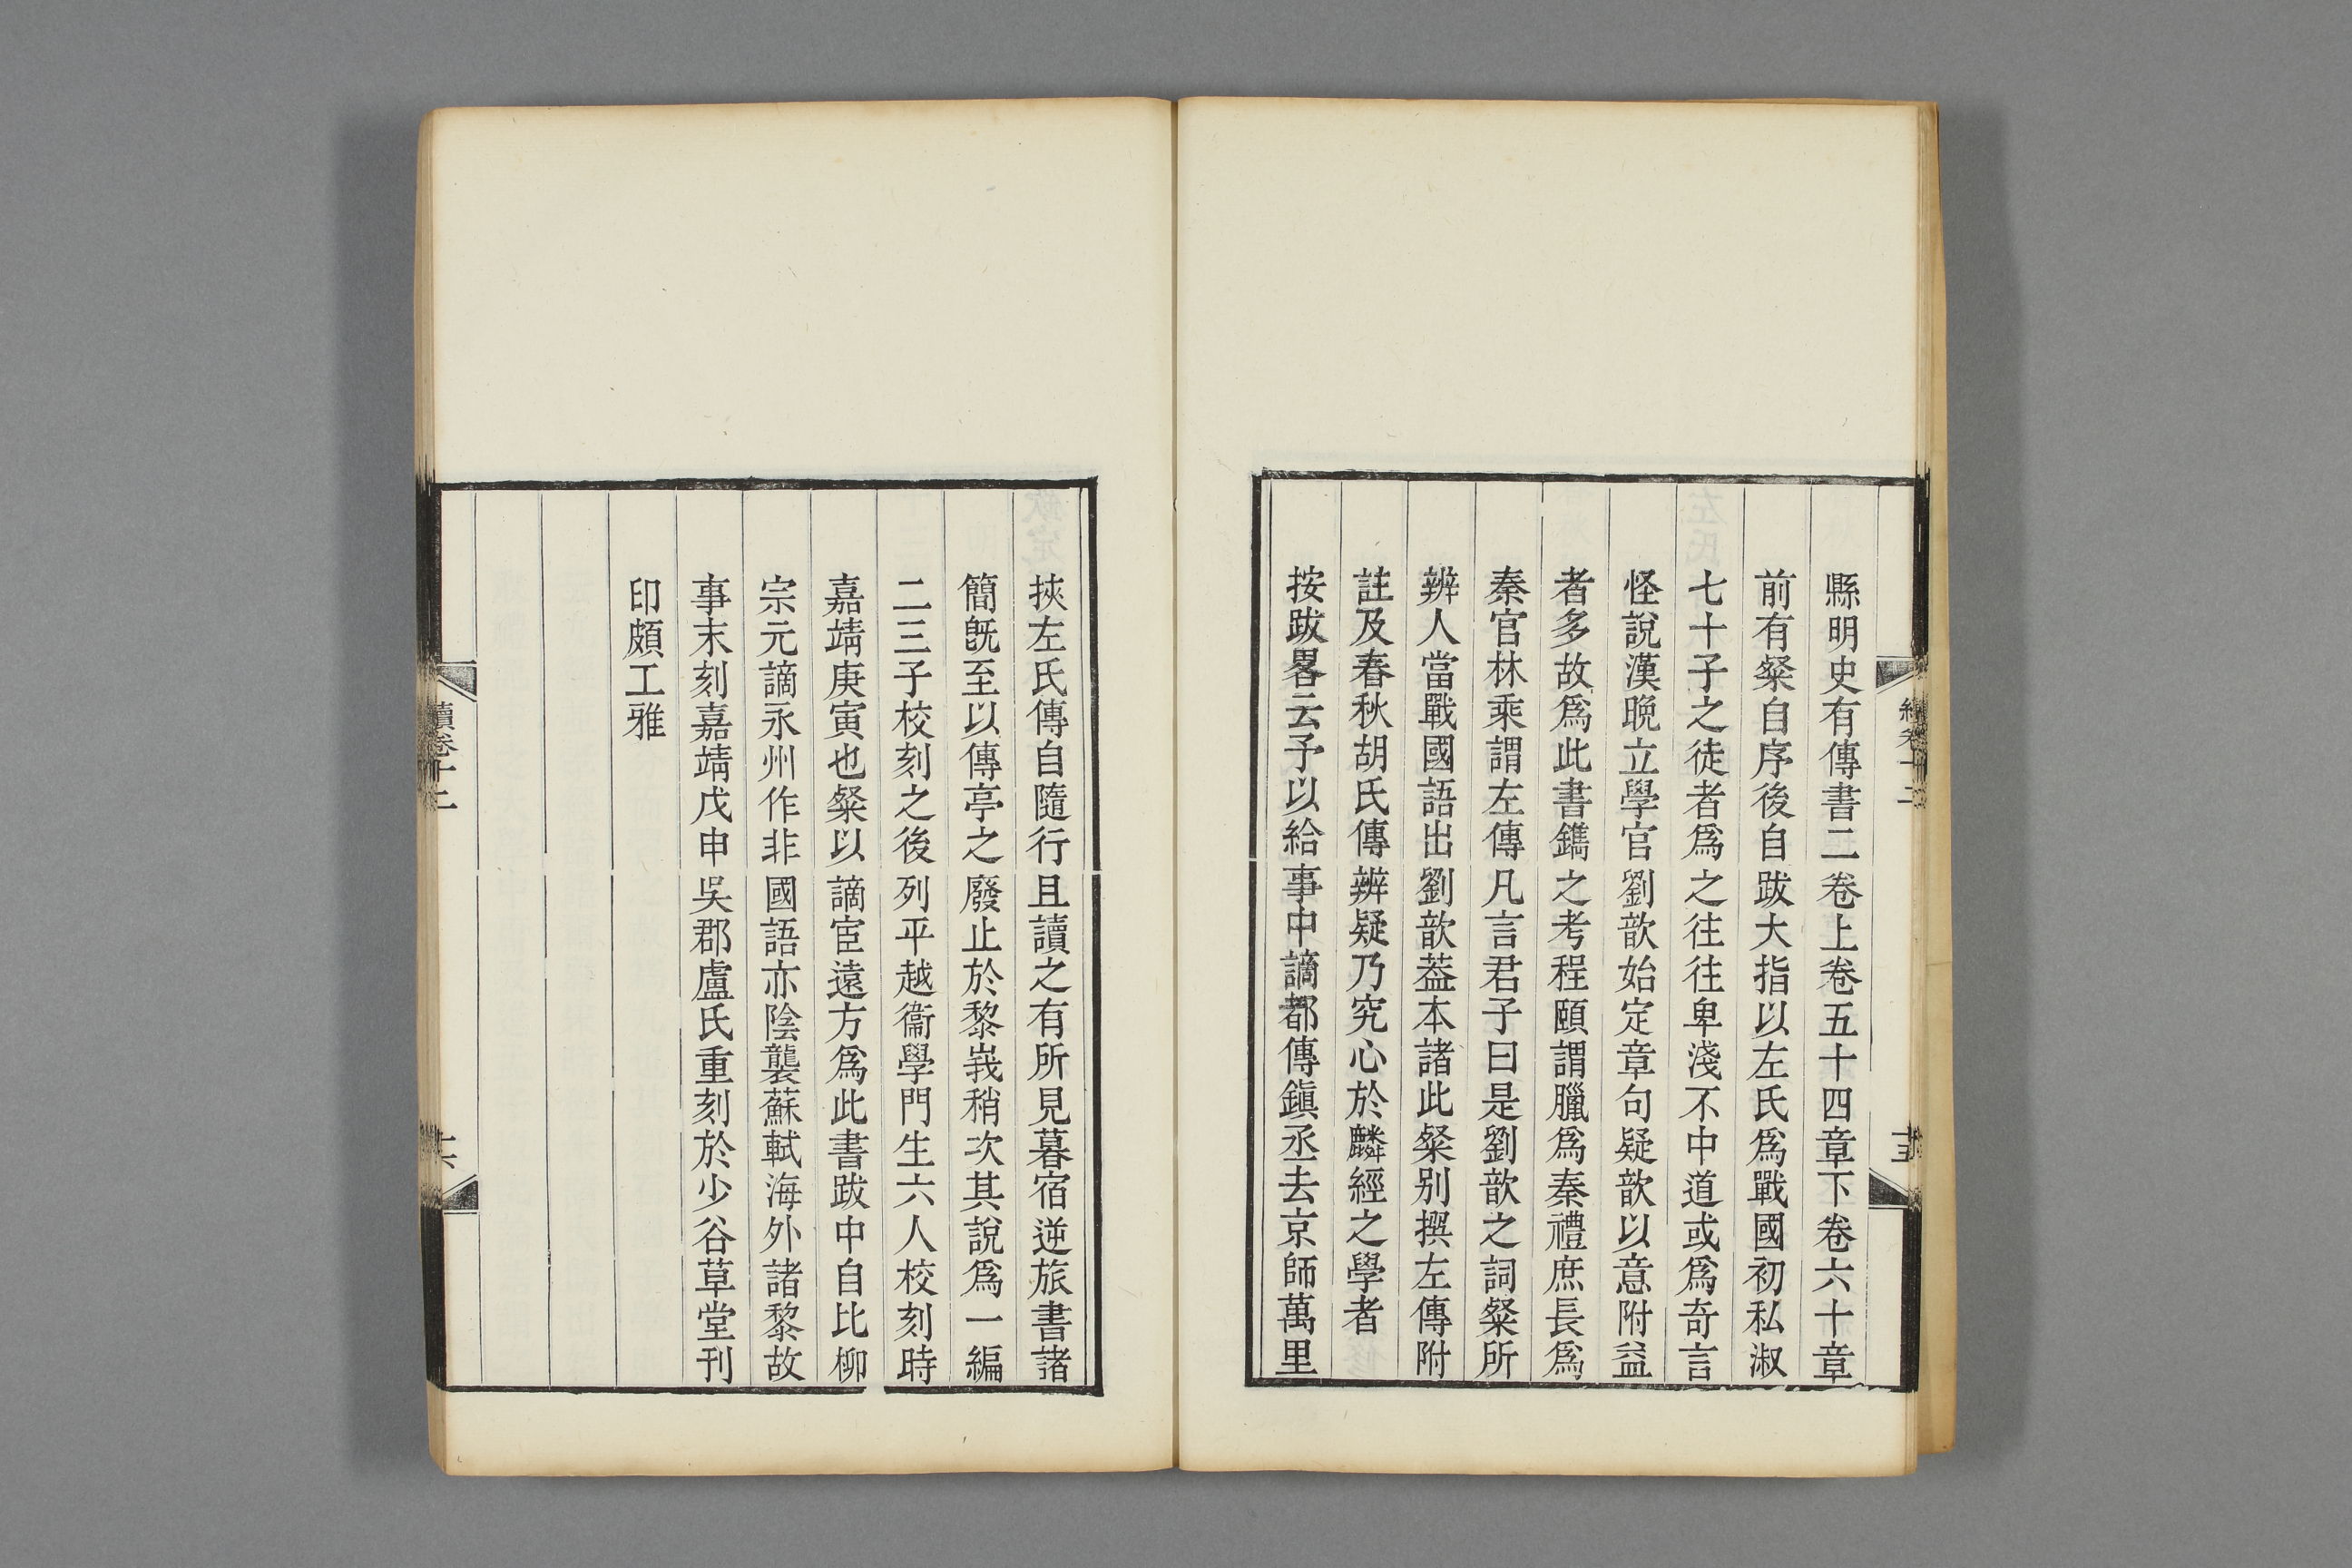 縣明史有傳書二卷上卷五十四章下卷六十章
前有粲自序後自跋大指以左氏爲戰國初私淑
七十子之徒者爲之往往卑淺不中道或爲奇言
怪說漢晚立學官劉歆始定章句疑歆以意附益
者多故爲此書鐫之考程頤謂臘爲秦禮庶長爲
秦官林乘謂左傳凡言君子曰是劉歆之詞粲所
辨人當戰國語出劉歆葢本諸此粲別撰左傳附
註及春秋胡氏傳辨疑乃究心於麟經之學者
按跋畧云予以給事中謫都傳鎭丞去京師萬里
挾左氏傳自隨行且讀之有所見暮宿逆旅書諸
簡旣至以傳亭之廢止於黎峩稍次其說爲一編
二三子校刻之後列平越衞學門生六人校刻時
嘉靖庚寅也粲以謫宦遠方爲此書跋中自比柳
宗元謫永州作非國語亦陰襲蘇軾海外諸黎故
事末刻嘉靖戊申吳郡盧氏重刻於少谷草堂刊
印頗工雅
續卷十二
十六